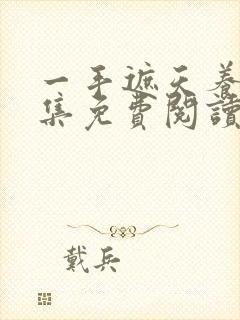 一手遮天養
集免費閱讀
戴兵